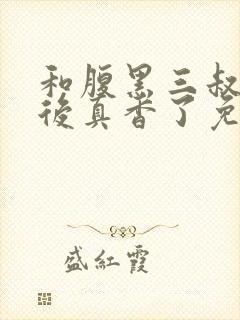 和腹黑三叔
後真香了免
盛紅霞